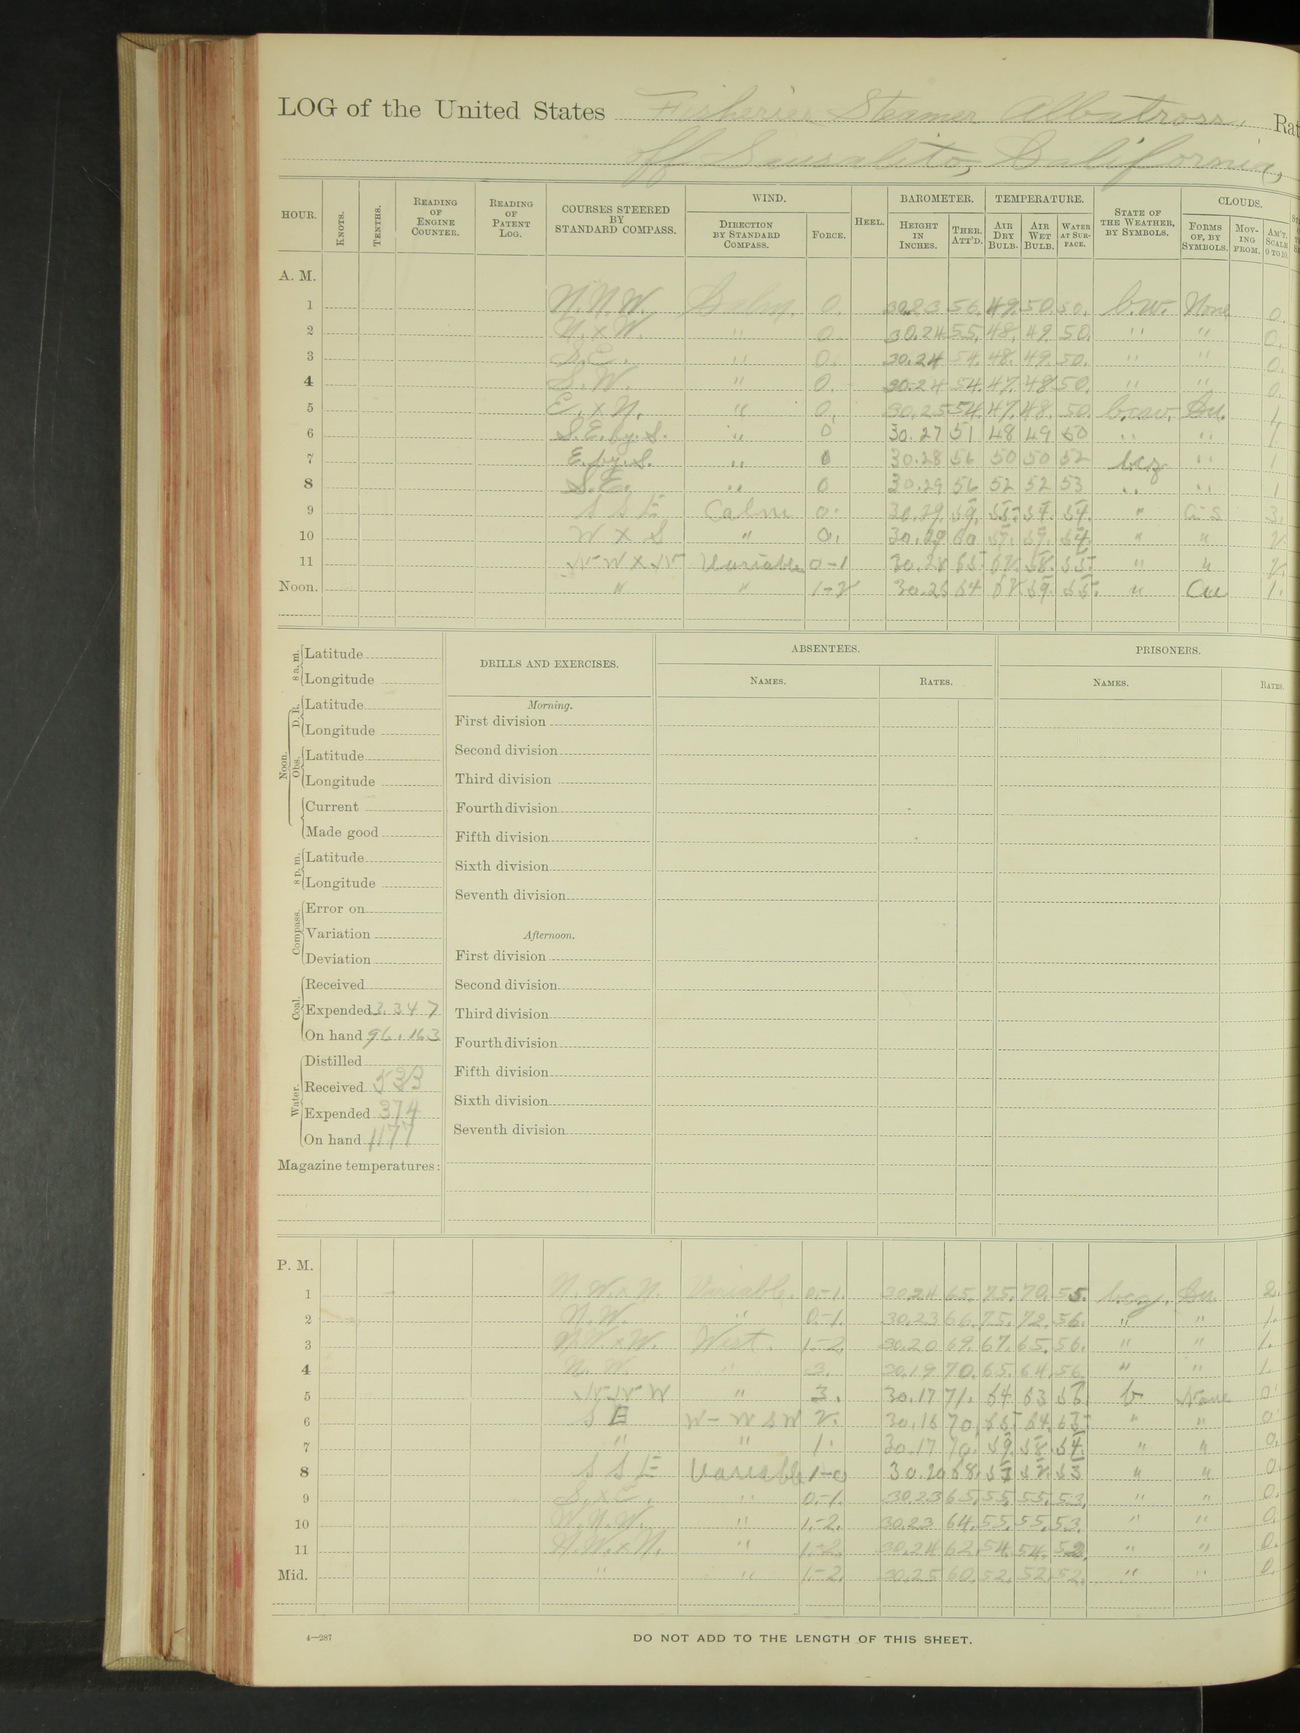 LOG of the United States Fisheries Steamer Albatross, Rat
off Sausalito, California,
HOUR. KNOTS. TENTHS. READING OF ENGINE COUNTER. READING OF PATENT LOG. COURSES STEERED BY STANDARD COMPASS. WIND. DIRECTION BY STANDARD COMPASS. FORCE. HEEL. BAROMETER. HEIGHT IN INCHES. THER. ATT'D. TEMPERATURE. AIR DRY BULB. AIR WET BULB. WATER AT SURFACE. STATE OF THE WEATHER, BY SYMBOLS. CLOUDS. FORMS OF, BY SYMBOLS. MOVING FROM. AM'T, SCALE 0 TO 10.
A. M.
1 N.N.W. Calm. 0. 30.23 56. 49. 50. 50. b.w. None 0.
2 N.xW. " 0. 30.24 55. 48. 49. 50. " " 0.
3 S.E. " 0. 30.24 54. 48. 49. 50. " " 0.
4 S.W. " 0. 30.24 54. 47. 48. 50. " " 0.
5 E.xN. " 0. 30.25 54. 47. 48. 50. b.c.w. Cu. 1
6 S.E. by S. " 0 30.27 51 48 49 50 " " 1.
7 E. by S. " 0 30.28 56 50 50 52 bcz " 1
8 S.E. " 0 30.29 56 52 52 53 " " 1
9 S S E Calm 0. 30.29. 59. 55. 54. 54. " C-S 3.
10 W X S " 0. 30.29 60 59. 59. 54. " " 2.
11 NW X N Variable 0-1 30.28 65. 62. 58. 55. " " 2.
Noon. " " 1-2 30.26 64 62. 59. 55. " Cu 1.
8 a. m. Latitude
Longitude
Noon. D. R. Latitude
Longitude
Obs. Latitude
Longitude
Current
Made good
8 p. m. Latitude
Longitude
Compass. Error on
Variation
Deviation
Coal. Received
Expended 3.347
On hand 96.163
Water. Distilled
Received 533
Expended 374
On hand 1177
Magazine temperatures:
DRILLS AND EXERCISES.
Morning.
First division
Second division
Third division
Fourth division
Fifth division
Sixth division
Seventh division
Afternoon.
First division
Second division
Third division
Fourth division
Fifth division
Sixth division
Seventh division
ABSENTEES.
NAMES. RATES.
PRISONERS.
NAMES. RATES.
P. M.
1 N.W.xN. Variable. 0.-1. 30.24 65. 75. 70. 55. bcz. Cu. 2.
2 N.W. " 0.-1. 30.23 66. 75. 72. 56. " " 1.
3 N.W.xW. West. 1.-2. 30.20 69. 67. 65. 56. " " 1.
4 N.W. " 3. 30.19 70. 65. 64. 56. " " 1.
5 NNW " 3. 30.17 71. 64 63 56. b None 0.
6 S E W-WSW 2. 30.16 70. 65. 64. 55. " " 0
7 " " 1. 30.17 70. 59. 58. 54. " " 0.
8 S S E Variable 1-0 30.20 68. 57 52. 53 " " 0.
9 S.xE. " 0.-1. 30.23 65. 55. 55. 53. " " 0.
10 W.N.W. " 1.-2. 30.23 64. 55. 55. 53. " " 0.
11 N.W.xN. " 1.-2. 30.24 62. 54. 54. 52. " " 0.
Mid. " " 1.-2. 30.25 60. 52. 52. 52. " " 0.
4—287
DO NOT ADD TO THE LENGTH OF THIS SHEET.